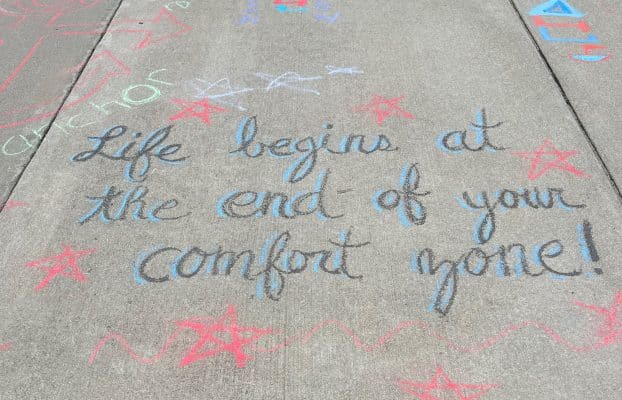 anchor
Life begins at
the end of your
comfort zone!